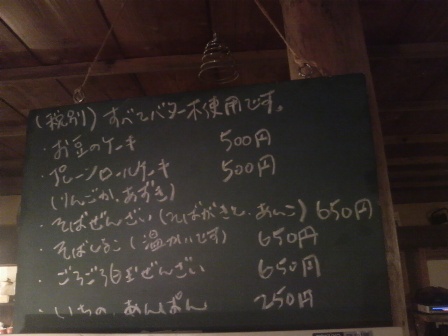 (税別) すべてバター不使用です。
・お豆のケーキ 500円
・プレーンロールケーキ 500円
(りんごか、あずき)
・そばぜんざい (そばがきと、あんこ) 650円
・そばしるこ (温かいです) 650円
・ごろごろ白玉ぜんざい 650円
・いちの、あんぱん 250円